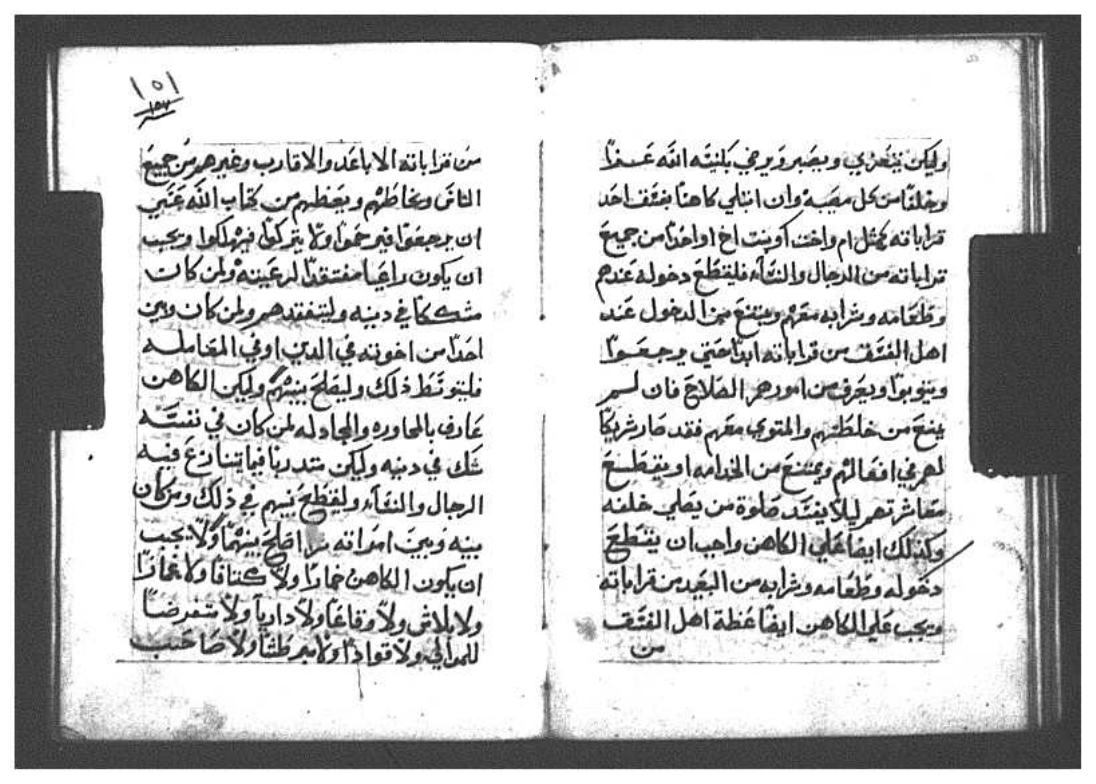 وليكن يتعزي ويصبر ويرجي بلنيته الله عـفـوا
وخلفا من كل مصيبه وان ابتلي كاهنا بفسق احد
قراباته كمثل ام واخت او بنت اخ او احدا من جميع
قراباته من الرجال والنسآء فليقطع دخوله عندهم
وطعامه وشرابه معهم ويمتنع من الدخول عند
اهل الفسق من قراباته ابدا حتي يرجـعـوا
ويتوبوا ويعرف من امورهم الصلاح فان لـم
يمنع من خلطتهم والمتوي معهم فقد صار شريكا
لهم في افعالهم ويمتنع من الخدامه او يقطـع
معاشرتهم ليلا يفسد صلوة من يصلي خلفه
وكذلك ايضا علي الكاهن واجب ان يقطع
دخوله وطعامه وشرابه من البعيد من قراباته
ويجب علي الكاهن ايضا عظة اهل الفسق
من
١٥١
من قراباته الاباعد والاقارب وغيرهم من جميع
الناس ويخاطبهم ويعظهم من كتاب الله عسي
ان يرجعوا فيرحموا ولا يتركوا فيهلكوا ويجب
ان يكون راعيا مفتقدا لرعيته ولمن كان
متشككا في دينه وليتفقدهم ولمن كان وبين
احدا من اخوته في الدين او في المعامله
فليتوسط ذلك وليصلح بينهم وليكن الكاهن
عارف بالمحاوره والمجادله لمن كان في نفسه
شك في دينه وليكن متدربا فيما يتنازع فيه
الرجال والنسآء وليقطع بينهم في ذلك ومن كان
بينه وبين امراته شر اصلح بينهما ولا يجب
ان يكون الكاهن خمارا ولا ولا غمازا
ولا بلاشي ولا وقاعا ولا ولا متعرضا
للموالي ولا قوادا ولا مبرطشا ولا صاحب